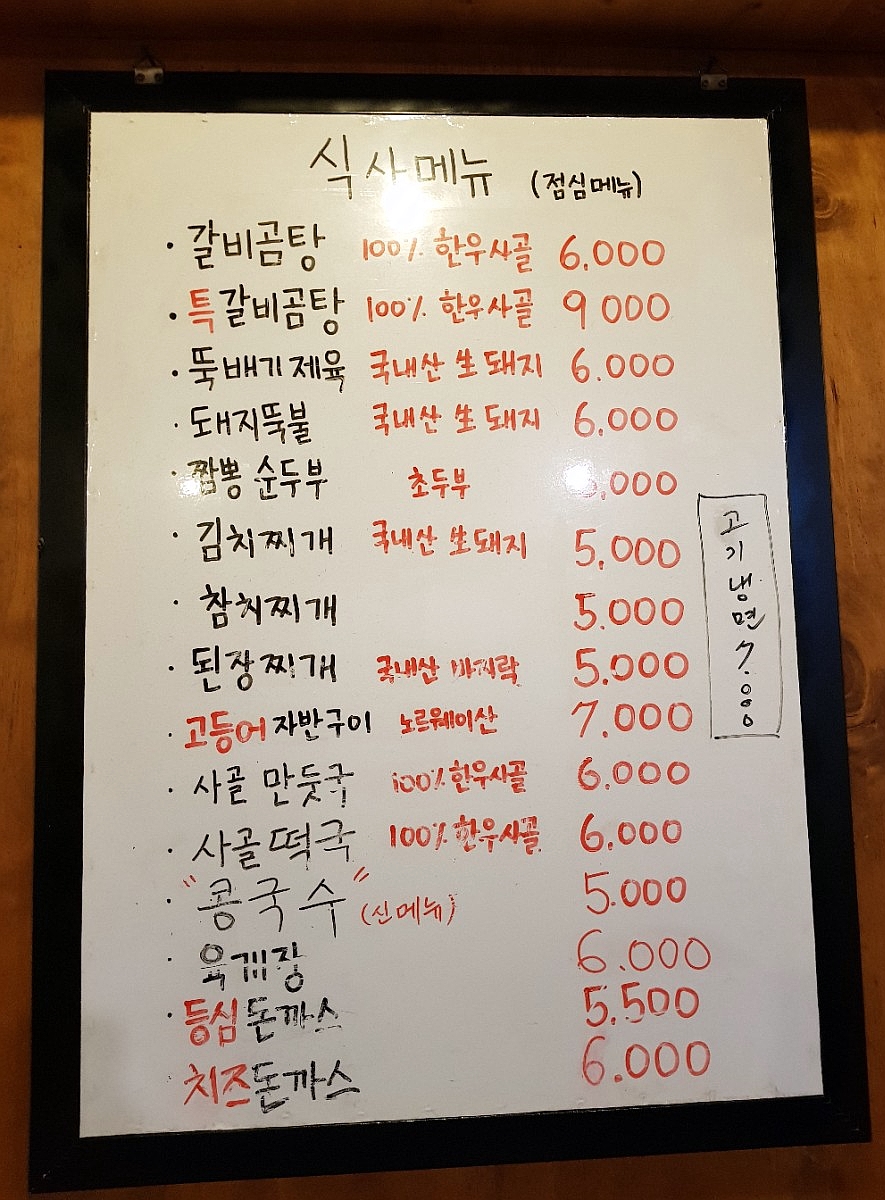 식사메뉴 (점심메뉴)
· 갈비곰탕 100% 한우사골 6.000
· 특갈비곰탕 100% 한우사골 9 000
· 뚝배기제육 국내산 生 돼지 6.000
· 돼지뚝불 국내산 生 돼지 6.000
· 짬뽕 순두부 초두부 ,000
· 김치찌개 국내산 生 돼지 5.000
· 참치찌개 5.000
· 된장찌개 국내산 바지락 5.000
· 고등어 자반구이 노르웨이산 7.000
· 사골 만둣국 100% 한우사골 6.000
· 사골떡국 100% 한우사골 6.000
· "콩국수" (신메뉴) 5.000
· 육개장 6.000
· 등심돈까스 5.500
치즈돈까스 6.000
고기냉면 7.000